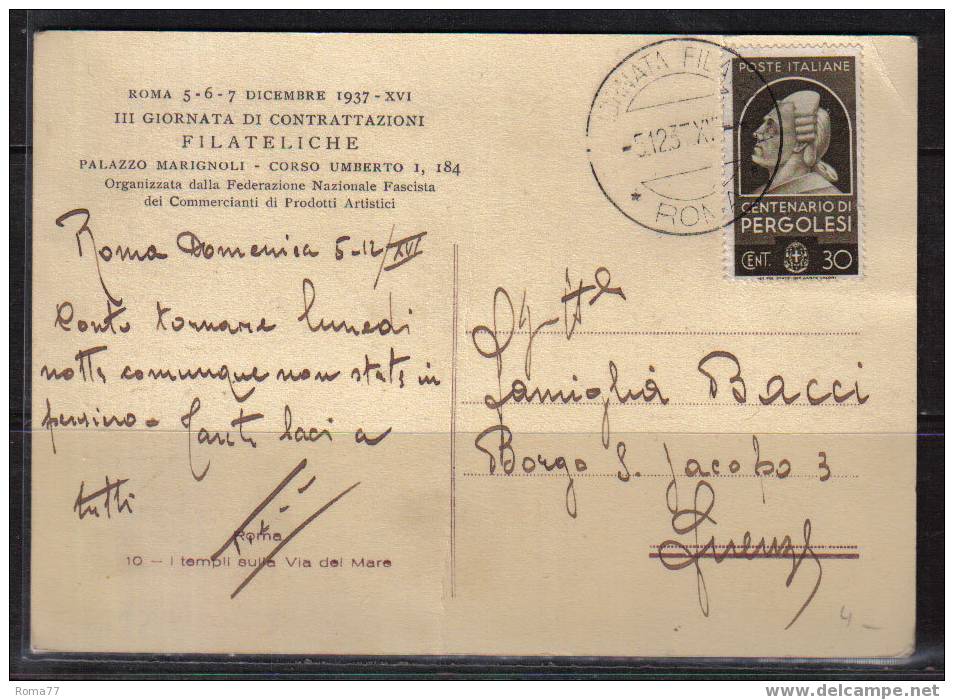 ROMA 5-6-7 DICEMBRE 1937 - XVI
III GIORNATA DI CONTRATTAZIONI
FILATELICHE
PALAZZO MARIGNOLI - CORSO UMBERTO I, 184
Organizzata dalla Federazione Nazionale Fascista
dei Commercianti di Prodotti Artistici
POSTE ITALIANE
CENTENARIO DI
PERGOLESI
CENT. 30
ROMA
Roma Domenica 5-12/XVI
Conto tornare lunedì
notte comunque non state in
pensiero - Tanti baci a
tutti
Roma
10 - I templi sulla Via del Mare
Famiglia Bacci
Borgo S. Jacopo 3
Firenze
4 -
Roma77
delcampe.net